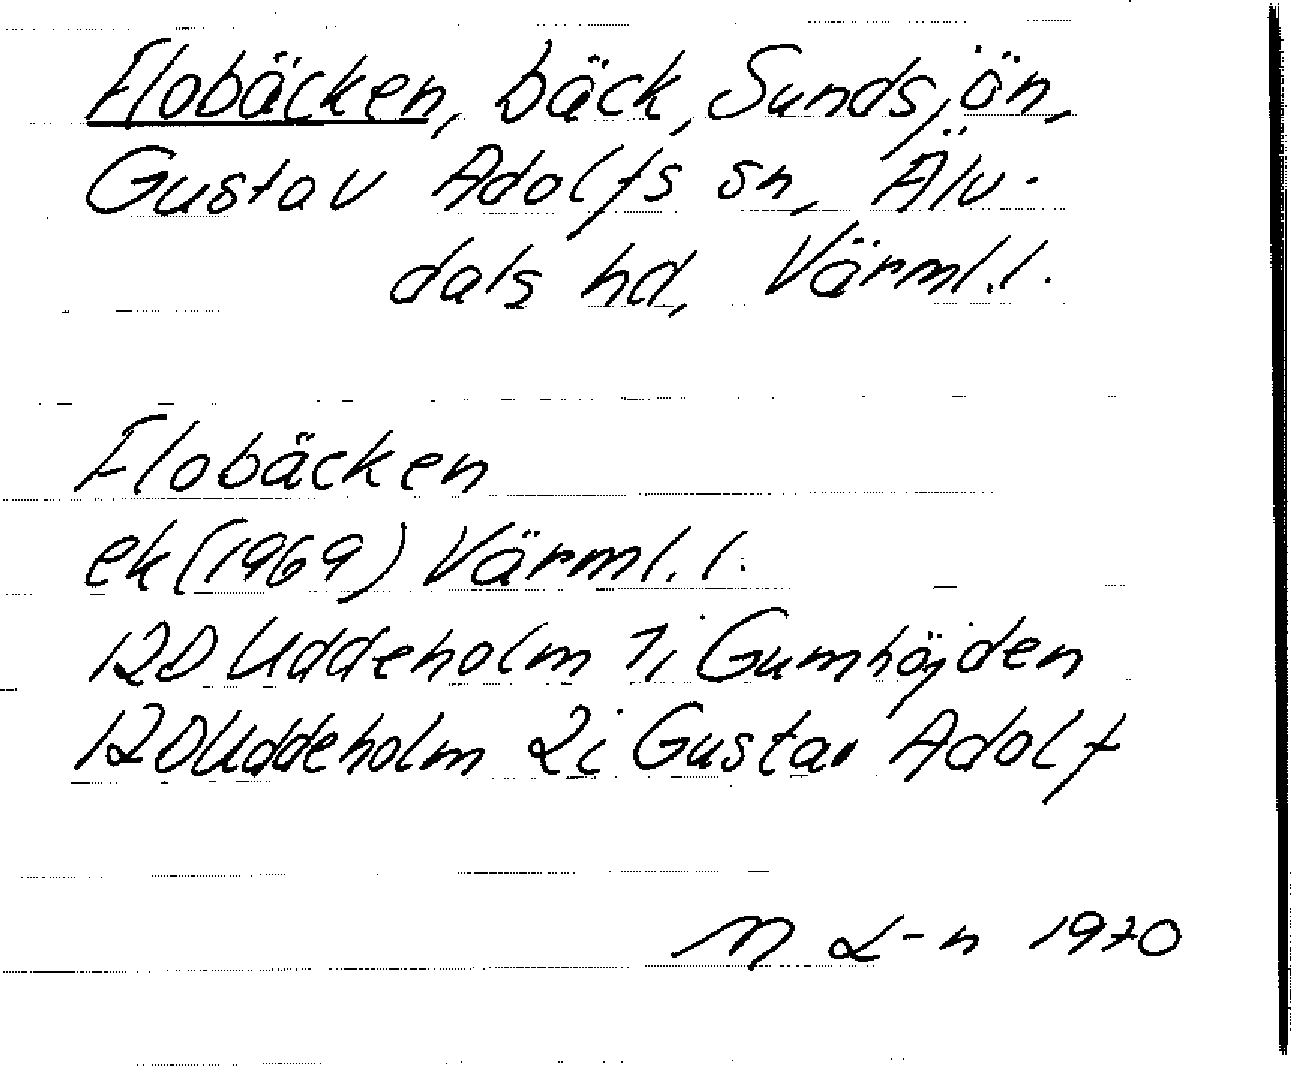 Flobäcken, bäck, Sundsjön,
Gustav Adolfs sn, Älv-
dals hd, Värml.l.
Flobäcken
ek (1969) Värml.l.
12D Uddeholm 7i Gumhöjden
12D Uddeholm 2i Gustav Adolf
M L-n 1970